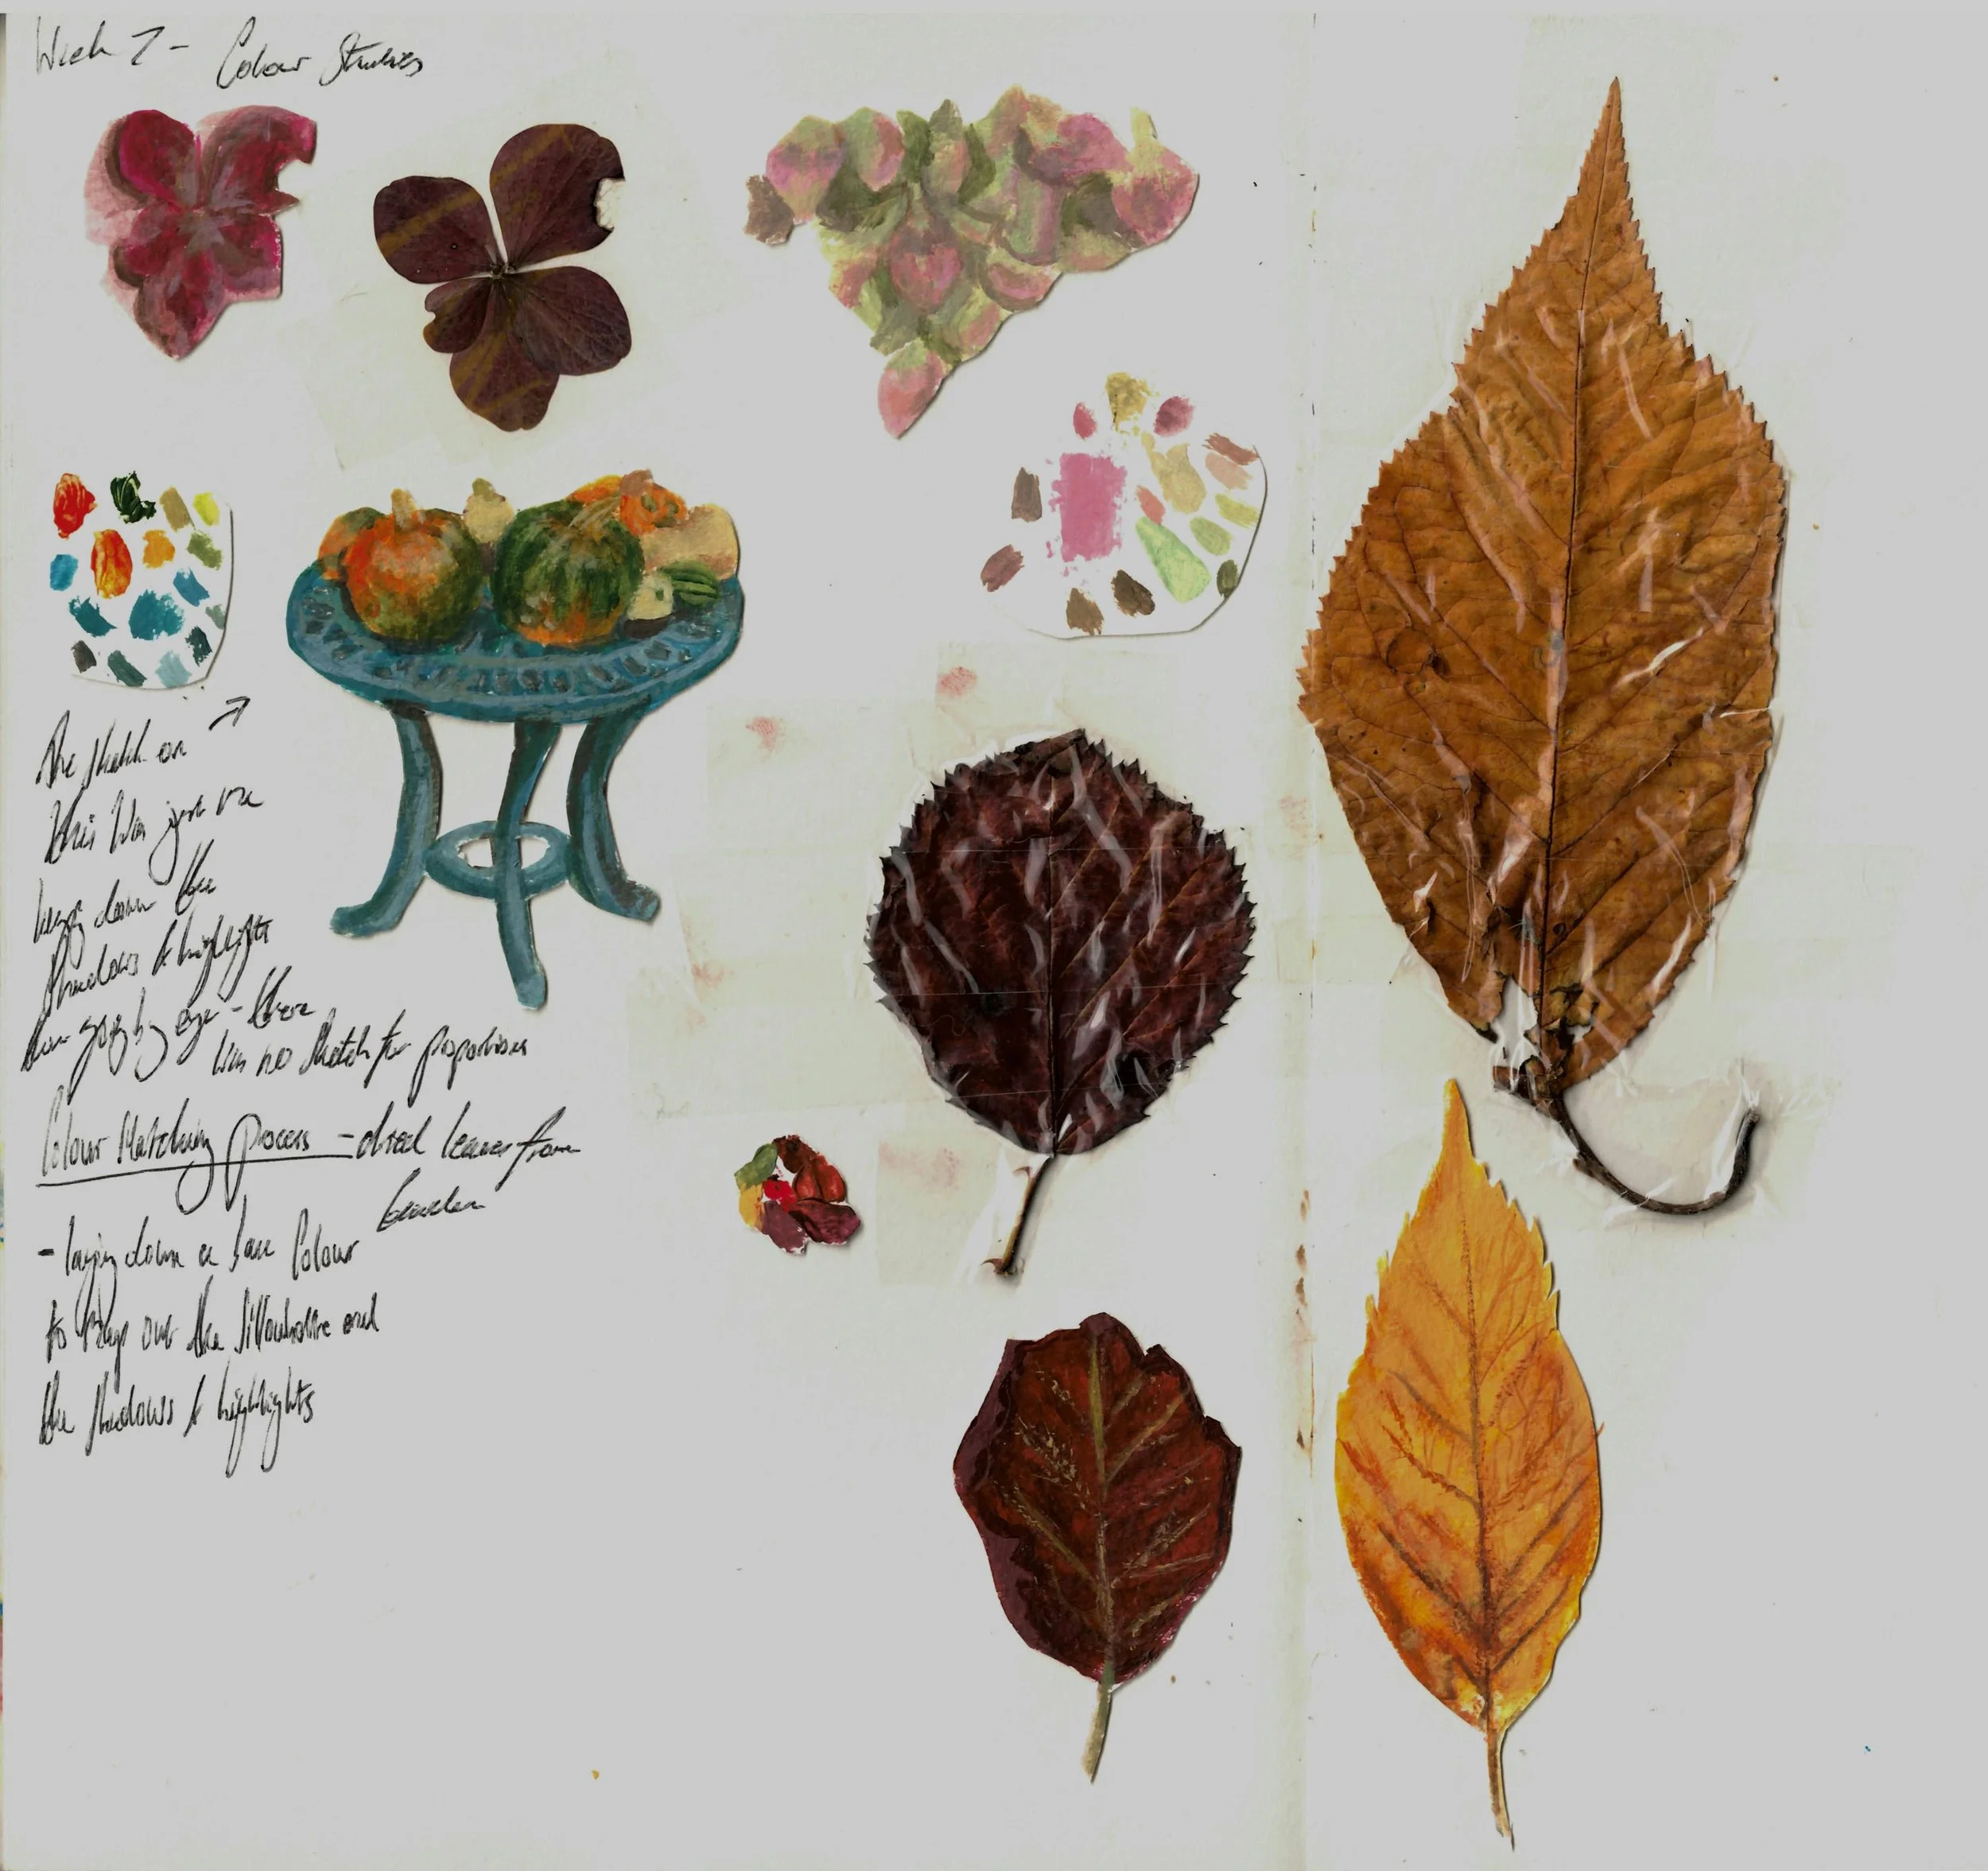 Week 7 - Colour Studies
the sketch on
this was just me
laying down the
shadows & highlights
going by eye - there
was no sketch for proportions
Colour Matching process - dried leaves from
Garden
- laying down a base Colour
to map out the Silouhette and
the shadows & highlights